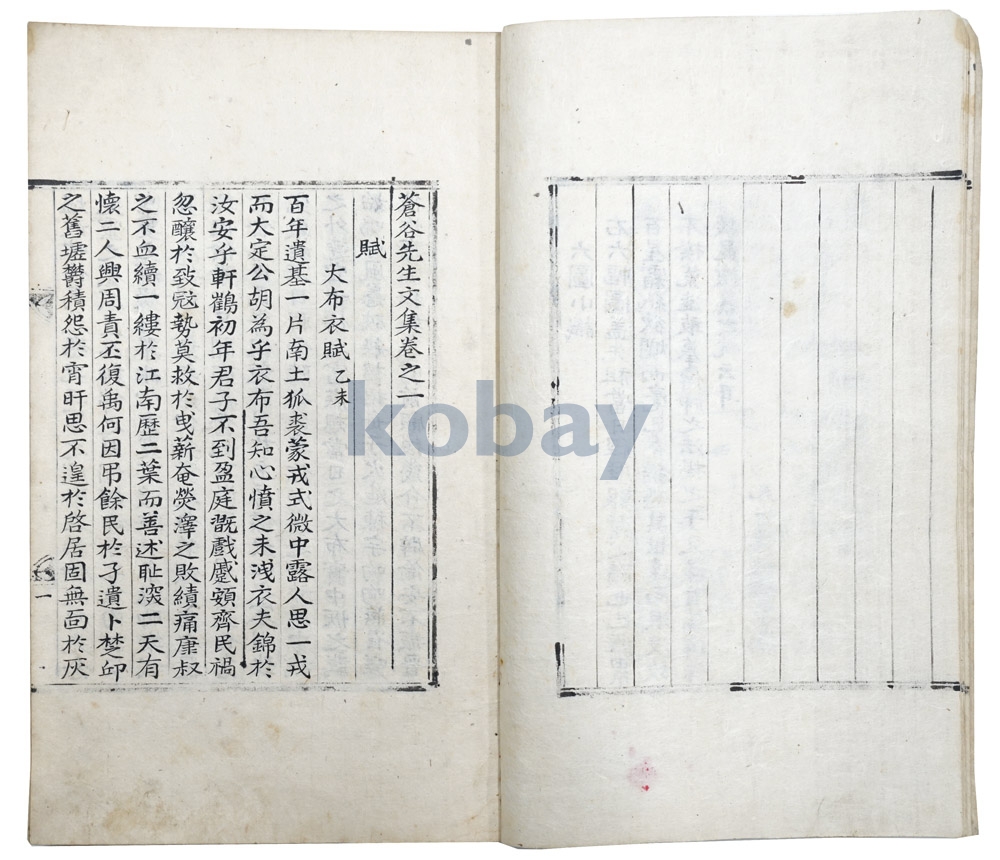 蒼谷先生文集卷之一
賦
大布衣賦 乙未
百年遺基一片南土狐裘蒙戎式微中露人思一戎
而大定公胡為乎衣布吾知心憤之未洩衣夫錦於
汝安乎軒鶴初年君子不到盈庭旣戲蹙頞齊民禍
忽釀於致冦勢莫救於曳薪奄熒澤之敗績痛康叔
之不血續一縷於江南歷二葉而善述耻深二天有
懷二人興周責丕復禹何因弔餘民於孑遺卜楚邱
之舊墟欝積怨於宵旰思不遑於啓居固無面於灰
一
kobay